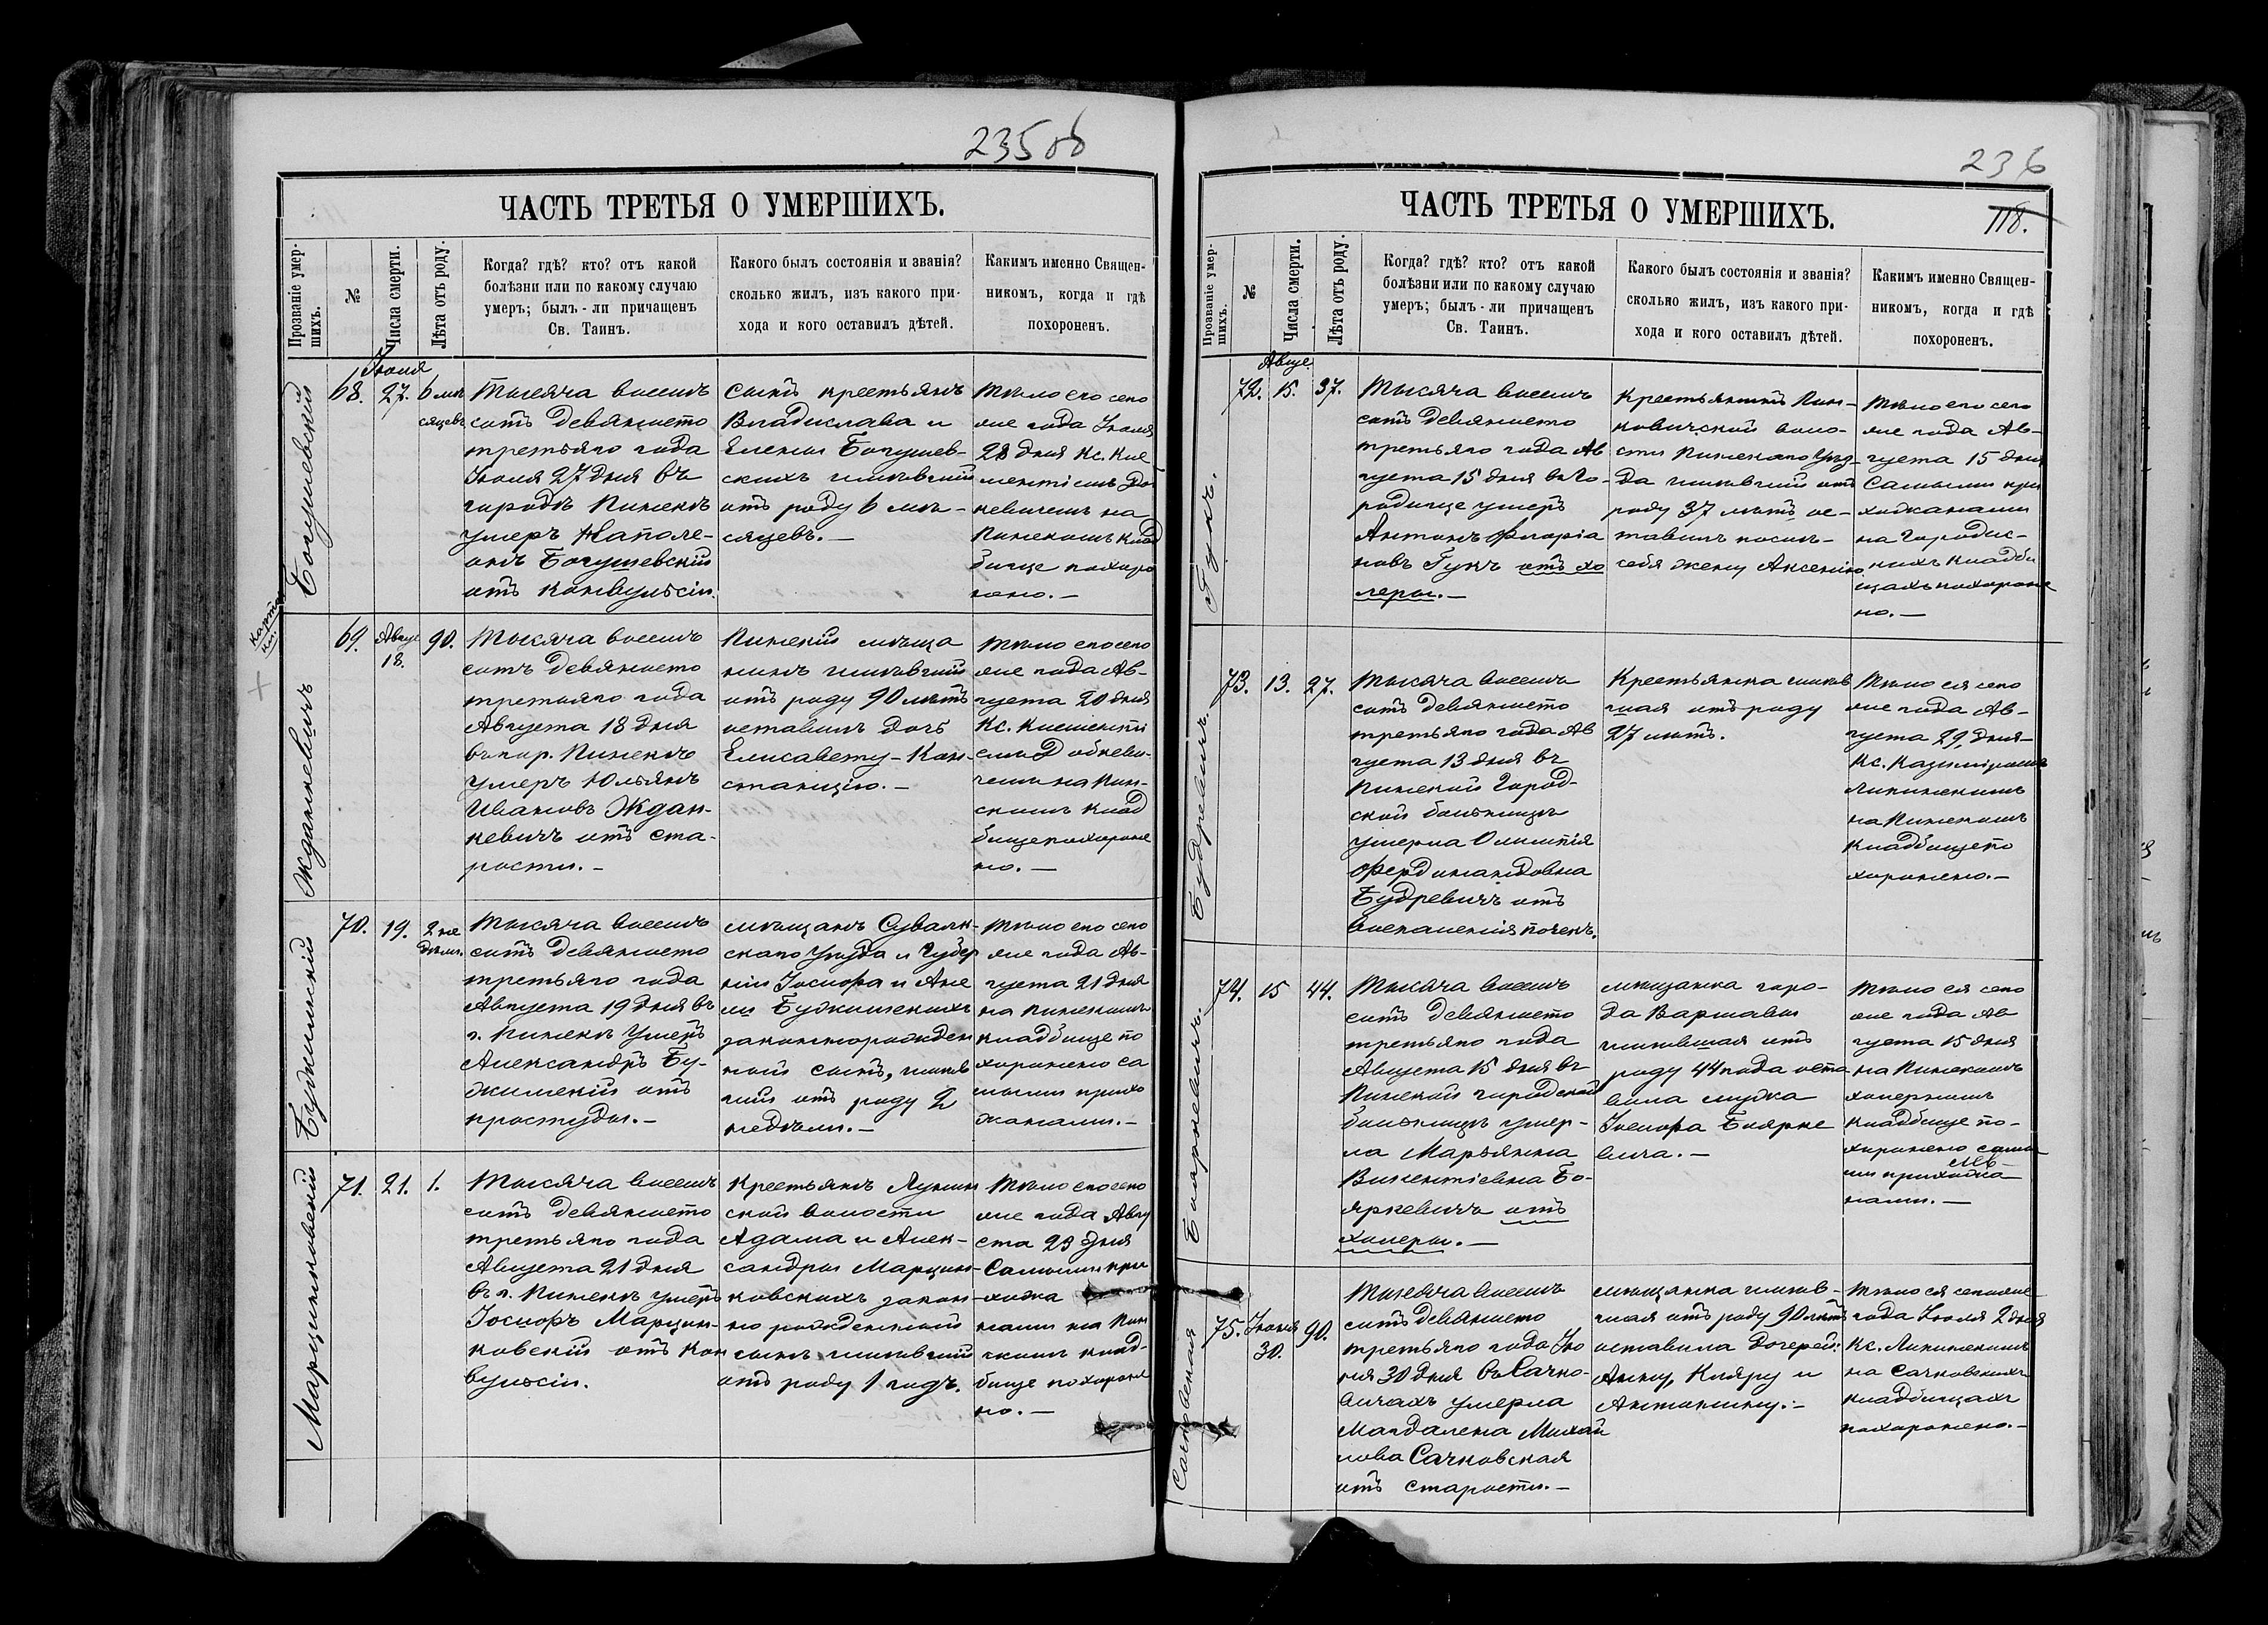 235об
ЧАСТЬ ТРЕТЬЯ О УМЕРШИХЪ.
Прозваніе умер-
шихъ.
№
Числа смерти.
Лѣта отъ роду.
Когда? гдѣ? кто? отъ какой
болѣзни или по какому случаю
умеръ; былъ-ли причащенъ
Св. Таинъ.
Какого былъ состоянія и званія?
сколько жилъ, изъ какого при-
хода и кого оставилъ дѣтей.
Какимъ именно Священ-
никомъ, когда и гдѣ
похороненъ.
Богушевскій
68.
Іюля
27.
6 мѣ
сяцевъ
Тысяча восемь
сотъ девяносто
третьяго года
Іюля 27 дня въ
городѣ Пинскѣ
умеръ Наполе-
онъ Богушевскій
отъ конвульсіи.
Сынъ крестьянъ
Владислава и
Елены Богушев-
скихъ имѣвшій
отъ роду 6 мѣ-
сяцевъ.—
Тѣло его сего
же года Іюля
28 дня Кс. Кле
ментіемъ До
невичемъ на
Пинскомъ клад
бище похоро
нено.—
Ждановичъ
69.
Авгус
18.
90.
Тысяча восемь
сотъ девяносто
третьяго года
Августа 18 дня
въ гор. Пинскѣ
умеръ Юльянъ
Ивановъ Ждан-
кевичъ отъ ста-
рости.—
Пинскій мѣща
нинъ имѣвшій
отъ роду 90 лѣтъ
оставилъ дочь
Елисавету-Кон-
станцію.—
Тѣло его сего
же года Ав-
густа 20 дня
Кс. Клементі
емъ Добкеви-
чемъ на Пин-
скомъ клад
бище похороне
но.—
Буджинскій
70.
19.
2 не
дѣли.
Тысяча восемь
сотъ девяносто
третьяго года
Августа 19 дня въ
г. Пинскѣ умеръ
Александръ Бу-
джинскій отъ
простуды.—
мѣщанъ Сувалк-
скаго Уѣзда и Губер
ніи Іосифа и Ане
ли Буджинскихъ
законнорожден
ный сынъ, имѣв
шій отъ роду 2
недѣли.—
Тѣло его сего
же года Ав-
густа 21 дня
на Пинскомъ
кладбище по
хоронено са
мыми прихо
жанами.—
Марцинковскій
71.
21.
1.
Тысяча восемь
сотъ девяносто
третьяго года
Августа 21 дня
въ г. Пинскѣ умеръ
Іосифъ Марцин-
ковскій отъ кон
вульсіи.
Крестьянъ Лунин
ской волости
Адама и Алек-
сандры Марцин-
ковскихъ закон-
но рожденный
сынъ имѣвшій
отъ роду 1 годъ.
Тѣло его сего
же года Авгу
ста 23 дня
самыми при
хожа
нами на Пин
скомъ клад-
бище похороне
но.—
236
118.
ЧАСТЬ ТРЕТЬЯ О УМЕРШИХЪ.
Прозваніе умер-
шихъ.
№
Числа смерти.
Лѣта отъ роду.
Когда? гдѣ? кто? отъ какой
болѣзни или по какому случаю
умеръ; былъ-ли причащенъ
Св. Таинъ.
Какого былъ состоянія и званія?
сколько жилъ, изъ какого при-
хода и кого оставилъ дѣтей.
Какимъ именно Священ-
никомъ, когда и гдѣ
похороненъ.
Гукъ.
72.
Авгус.
15.
37.
Тысяча восемь
сотъ девяносто
третьяго года Ав
густа 15 дня въ Го-
родище умеръ
Антонъ Флоріа
новъ Гукъ отъ хо
леры.—
Крестьянинъ Пин-
ковичской воло-
сти Пинскаго Уѣз-
да имѣвшій отъ
роду 37 лѣтъ ос-
тавилъ послѣ
себя жену Аксенію
Тѣло его сего
же года Ав-
густа 15 дня
самыми при
хожанами
на Городис-
кихъ кладби
щахъ похороне
но.—
Будревичъ.
73.
13.
27.
Тысяча восемь
сотъ девяносто
третьяго года Ав
густа 13 дня въ
Пинской город-
ской больницѣ
умерла Олимпія
Фердинандовна
Будревичъ отъ
воспаленія почекъ.
Крестьянка имѣв
шая отъ роду
27 лѣтъ.
Тѣло ея сего
же года Ав-
густа 29, дня
Кс. Казиміромъ
Липинскимъ
на Пинскомъ
кладбище по
хоронено.—
Бояркевичъ.
74.
15
44.
Тысяча восемь
сотъ девяносто
третьяго года
Августа 15 дня въ
Пинской городской
больницѣ умер-
ла Марьянна
Викентіевна Бо-
яркевичъ отъ
холеры.—
мѣщанка горо-
да Варшавы
имѣвшая отъ
роду 44 года оста
вила мужа
Іосифа Боярке
вича.—
Тѣло ея сего
же года Ав
густа 15 дня
на Пинскомъ
холерномъ
кладбище по-
хоронено самы-
ми прихожа
нами.—
Сачковская
75.
Іюня
30.
90.
Тысяча восемь
сотъ девяносто
третьяго года Ію
ня 30 дня въ Сачко-
вичахъ умерла
Магдалена Михай
лова Сачковская
отъ старости.—
мѣщанка имѣв-
шая отъ роду 90 лѣтъ
оставила дочерей:
Анну, Кляру и
Антонину.—
Тѣло ея сего же
года Іюля 2 дня
Кс. Липинскимъ
на Сачковскихъ
кладбищахъ
похоронено.—